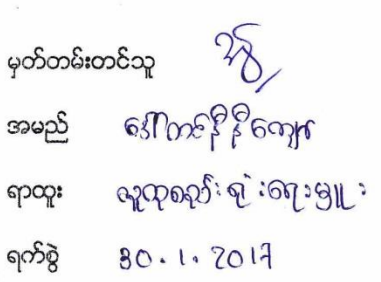 မှတ်တမ်းတင်သူ
အမည် ဒေါ်တင်နီနီကျော်
ရာထူး လူထုစည်းရုံးရေးမှူး
ရက်စွဲ 30.1.2017